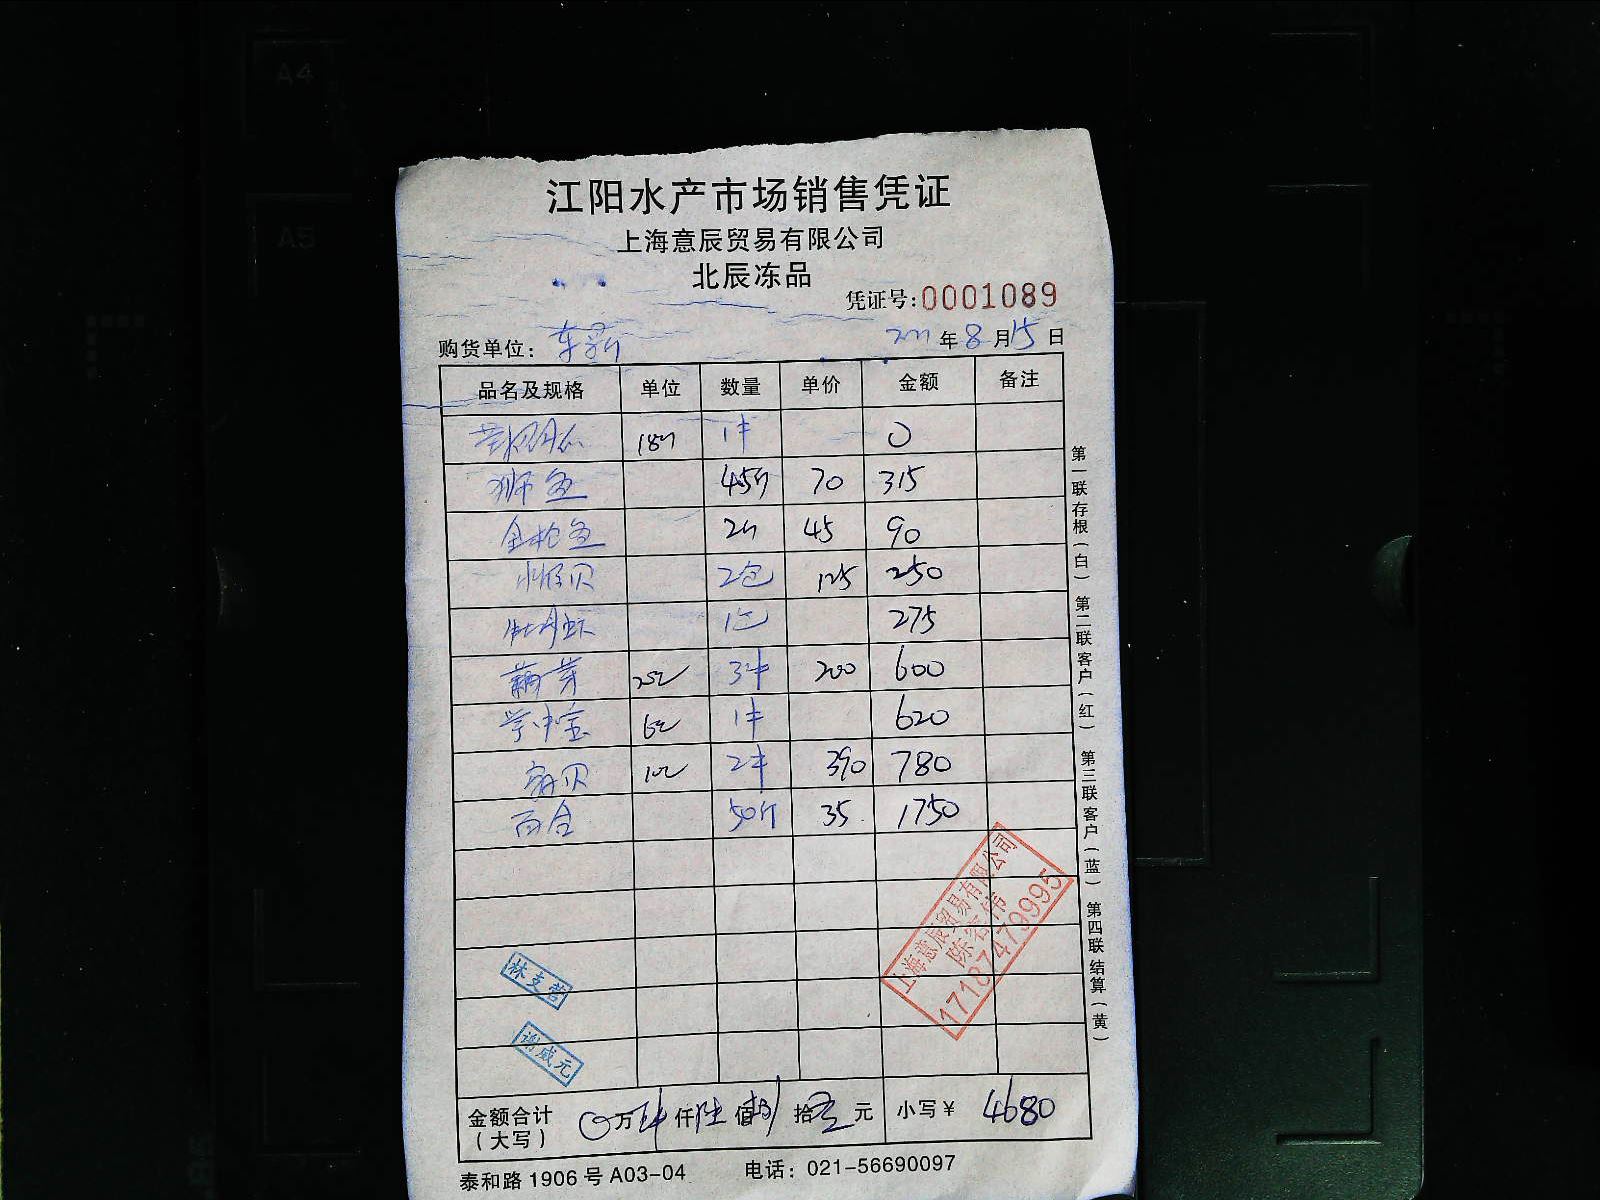 A4
A5
江阳水产市场销售凭证
上海意辰贸易有限公司
北辰冻品
凭证号:0001089
购货单位: 年8月15日
品名及规格 单位 数量 单价 金额 备注
1件 0
狮鱼 45斤 70 315
金枪鱼 2 45 90
贝 2包 125 250
牡丹虾 1包 275
藕芽 3件 200 600
1件 620
贝 2件 390 780
百合 50斤 35 1750
第一联存根(白) 第二联客户(红) 第三联客户(蓝) 第四联结算(黄)
上海意辰贸易有限公司
17187479995
林支营
谢咸元
金额合计(大写) 0万 仟陆佰捌拾 元 小写¥ 4680
泰和路1906号A03-04 电话: 021-56690097